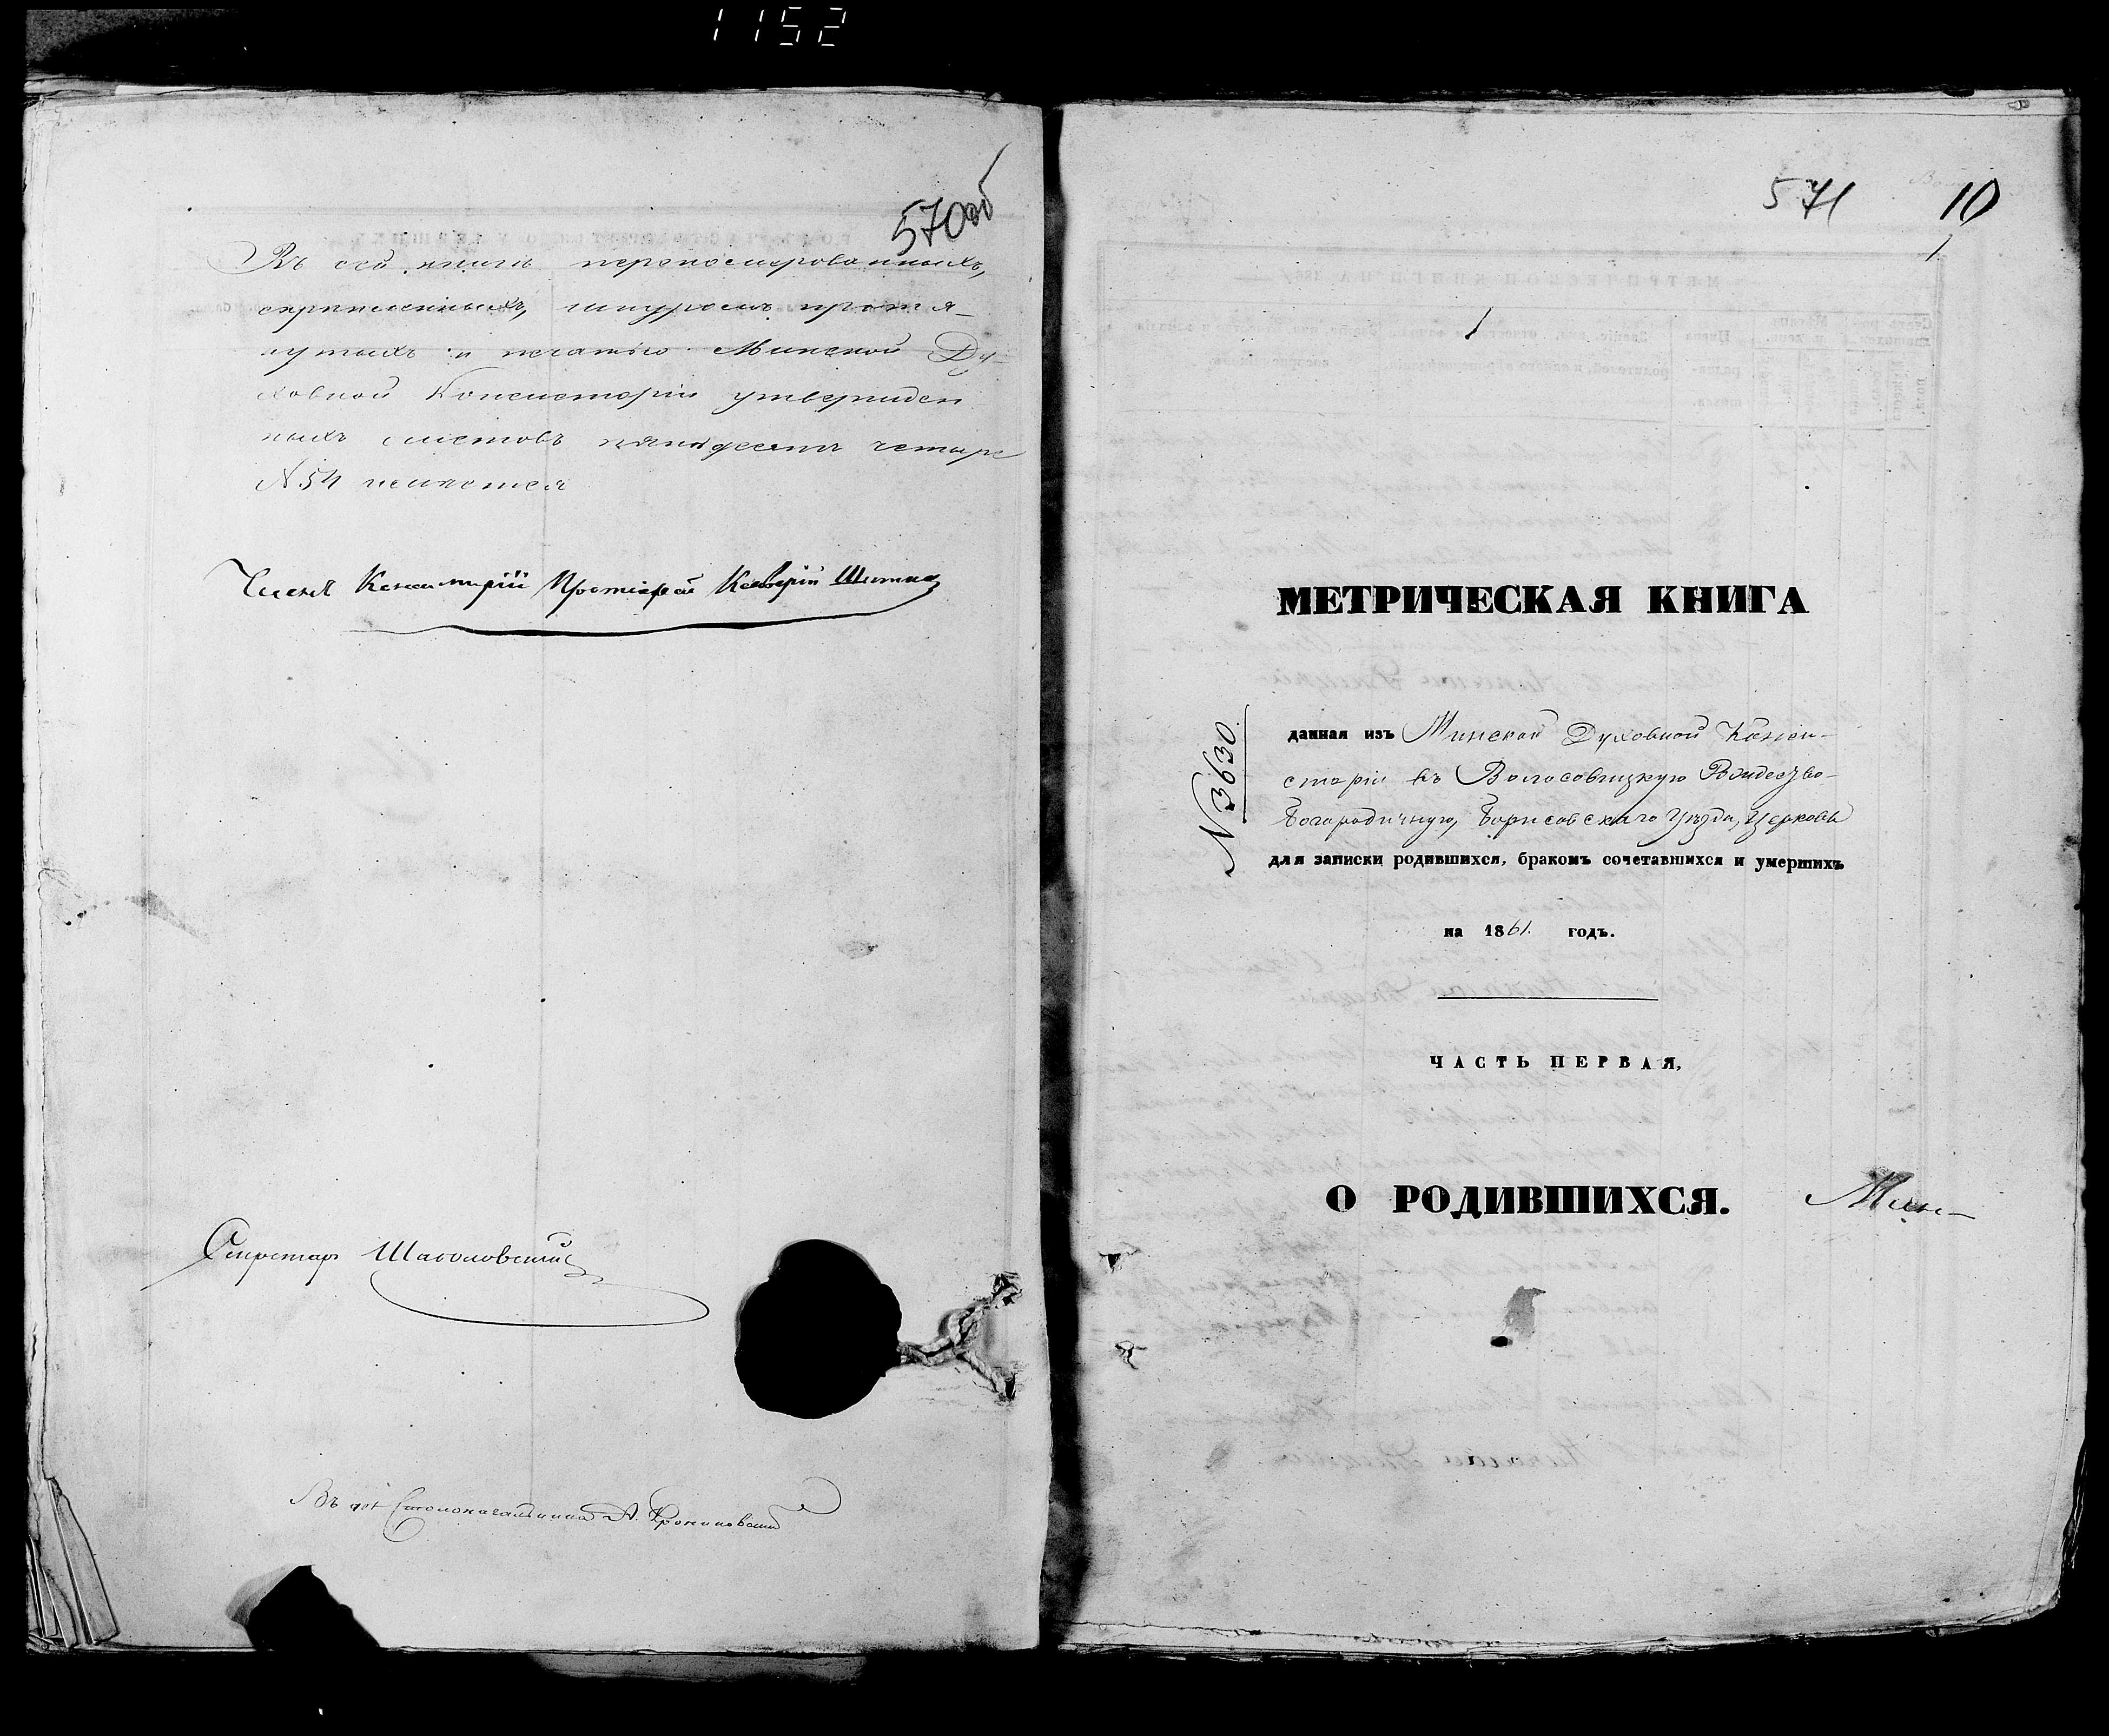 1152
570об
Въ сей книгѣ перономерованныхъ,
скрѣпленныхъ, шнуромъ протя-
нутыхъ и печатью Минской Ду-
ховной Консисторіи утвержден
ныхъ листовъ пятьдесятъ четыре
№ 54 числится
Членъ Консисторіи Протоіерей
Секретарь
Въ дол. Столоначальника А.
571 10
1
1
МЕТРИЧЕСКАЯ КНИГА
№ 3630.
данная изъ Минской Духовной Конси-
сторіи въ Волосовицкую Рождество-
Богородичную, Борисовскаго Уѣзда, Церковь
для записки родившихся, бракомъ сочетавшихся и умершихъ
на 1861. годъ.
ЧАСТЬ ПЕРВАЯ,
О РОДИВШИХСЯ.
Мин-